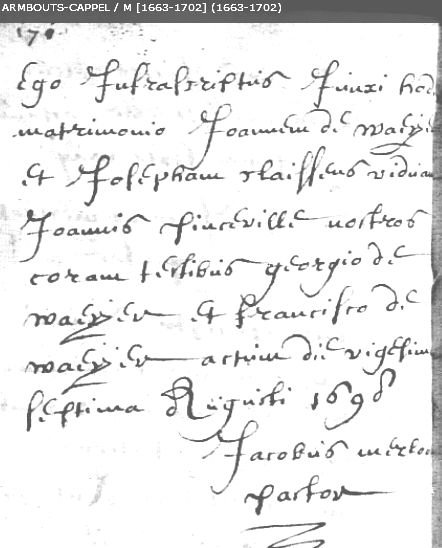 ARMBOUTS-CAPPEL / M [1663-1702] (1663-1702)
Ego Infrascriptus Iunxi hod
matrimonio Joannem de waeyer
et Josepham Claissens viduam
Joannis pinceville nostros
coram testibus georgio de
waeyer et francisco de
waeyer actum die vigesim
septima Augusti 1698
Jacobus
pastor